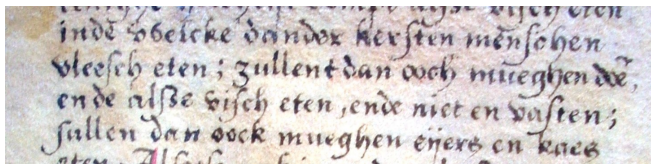 visch eten
inde welcke dander kersten menschen
vleesch eten; zullent dan ooch mueghen doē,
ende alsze visch eten, ende niet en vasten;
sullen dan oock mueghen eijers en kaes
eten